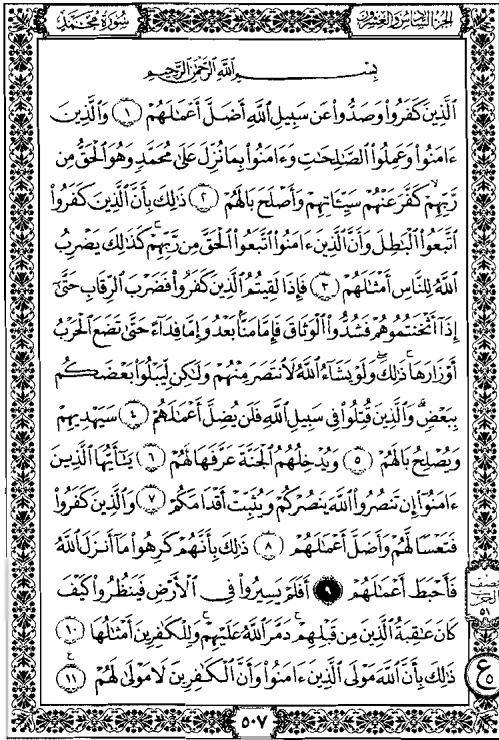 الجزء السادس والعشرون
سورة محمد
بِسْمِ اللَّهِ الرَّحْمَٰنِ الرَّحِيمِ
الَّذِينَ كَفَرُوا۟ وَصَدُّوا۟ عَن سَبِيلِ اللَّهِ أَضَلَّ أَعْمَٰلَهُمْ ١ وَالَّذِينَ
ءَامَنُوا۟ وَعَمِلُوا۟ الصَّٰلِحَٰتِ وَءَامَنُوا۟ بِمَا نُزِّلَ عَلَىٰ مُحَمَّدٍ وَهُوَ الْحَقُّ مِن
رَّبِّهِمْ ۙ كَفَّرَ عَنْهُمْ سَيِّـَٔاتِهِمْ وَأَصْلَحَ بَالَهُمْ ٢ ذَٰلِكَ بِأَنَّ الَّذِينَ كَفَرُوا۟
اتَّبَعُوا۟ الْبَٰطِلَ وَأَنَّ الَّذِينَ ءَامَنُوا۟ اتَّبَعُوا۟ الْحَقَّ مِن رَّبِّهِمْ ۚ كَذَٰلِكَ يَضْرِبُ
اللَّهُ لِلنَّاسِ أَمْثَٰلَهُمْ ٣ فَإِذَا لَقِيتُمُ الَّذِينَ كَفَرُوا۟ فَضَرْبَ الرِّقَابِ حَتَّىٰٓ
إِذَآ أَثْخَنتُمُوهُمْ فَشُدُّوا۟ الْوَثَاقَ فَإِمَّا مَنًّۢا بَعْدُ وَإِمَّا فِدَآءً حَتَّىٰ تَضَعَ الْحَرْبُ
أَوْزَارَهَا ۚ ذَٰلِكَ ۖ وَلَوْ يَشَآءُ اللَّهُ لَانتَصَرَ مِنْهُمْ وَلَٰكِن لِّيَبْلُوَا۟ بَعْضَكُم
بِبَعْضٍ ۗ وَالَّذِينَ قُتِلُوا۟ فِى سَبِيلِ اللَّهِ فَلَن يُضِلَّ أَعْمَٰلَهُمْ ٤ سَيَهْدِيهِمْ
وَيُصْلِحُ بَالَهُمْ ٥ وَيُدْخِلُهُمُ الْجَنَّةَ عَرَّفَهَا لَهُمْ ٦ يَٰٓأَيُّهَا الَّذِينَ
ءَامَنُوٓا۟ إِن تَنصُرُوا۟ اللَّهَ يَنصُرْكُمْ وَيُثَبِّتْ أَقْدَامَكُمْ ٧ وَالَّذِينَ كَفَرُوا۟
فَتَعْسًا لَّهُمْ وَأَضَلَّ أَعْمَٰلَهُمْ ٨ ذَٰلِكَ بِأَنَّهُمْ كَرِهُوا۟ مَآ أَنزَلَ اللَّهُ
فَأَحْبَطَ أَعْمَٰلَهُمْ ٩ أَفَلَمْ يَسِيرُوا۟ فِى الْأَرْضِ فَيَنظُرُوا۟ كَيْفَ
كَانَ عَٰقِبَةُ الَّذِينَ مِن قَبْلِهِمْ ۚ دَمَّرَ اللَّهُ عَلَيْهِمْ ۖ وَلِلْكَٰفِرِينَ أَمْثَٰلُهَا ١٠
ذَٰلِكَ بِأَنَّ اللَّهَ مَوْلَى الَّذِينَ ءَامَنُوا۟ وَأَنَّ الْكَٰفِرِينَ لَا مَوْلَىٰ لَهُمْ ١١
نصف
الحزب
٥١
ع
٥
٥٠٧